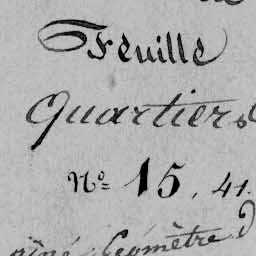 Feuille
Quartiers
N.o 15, 41.
Géomètre